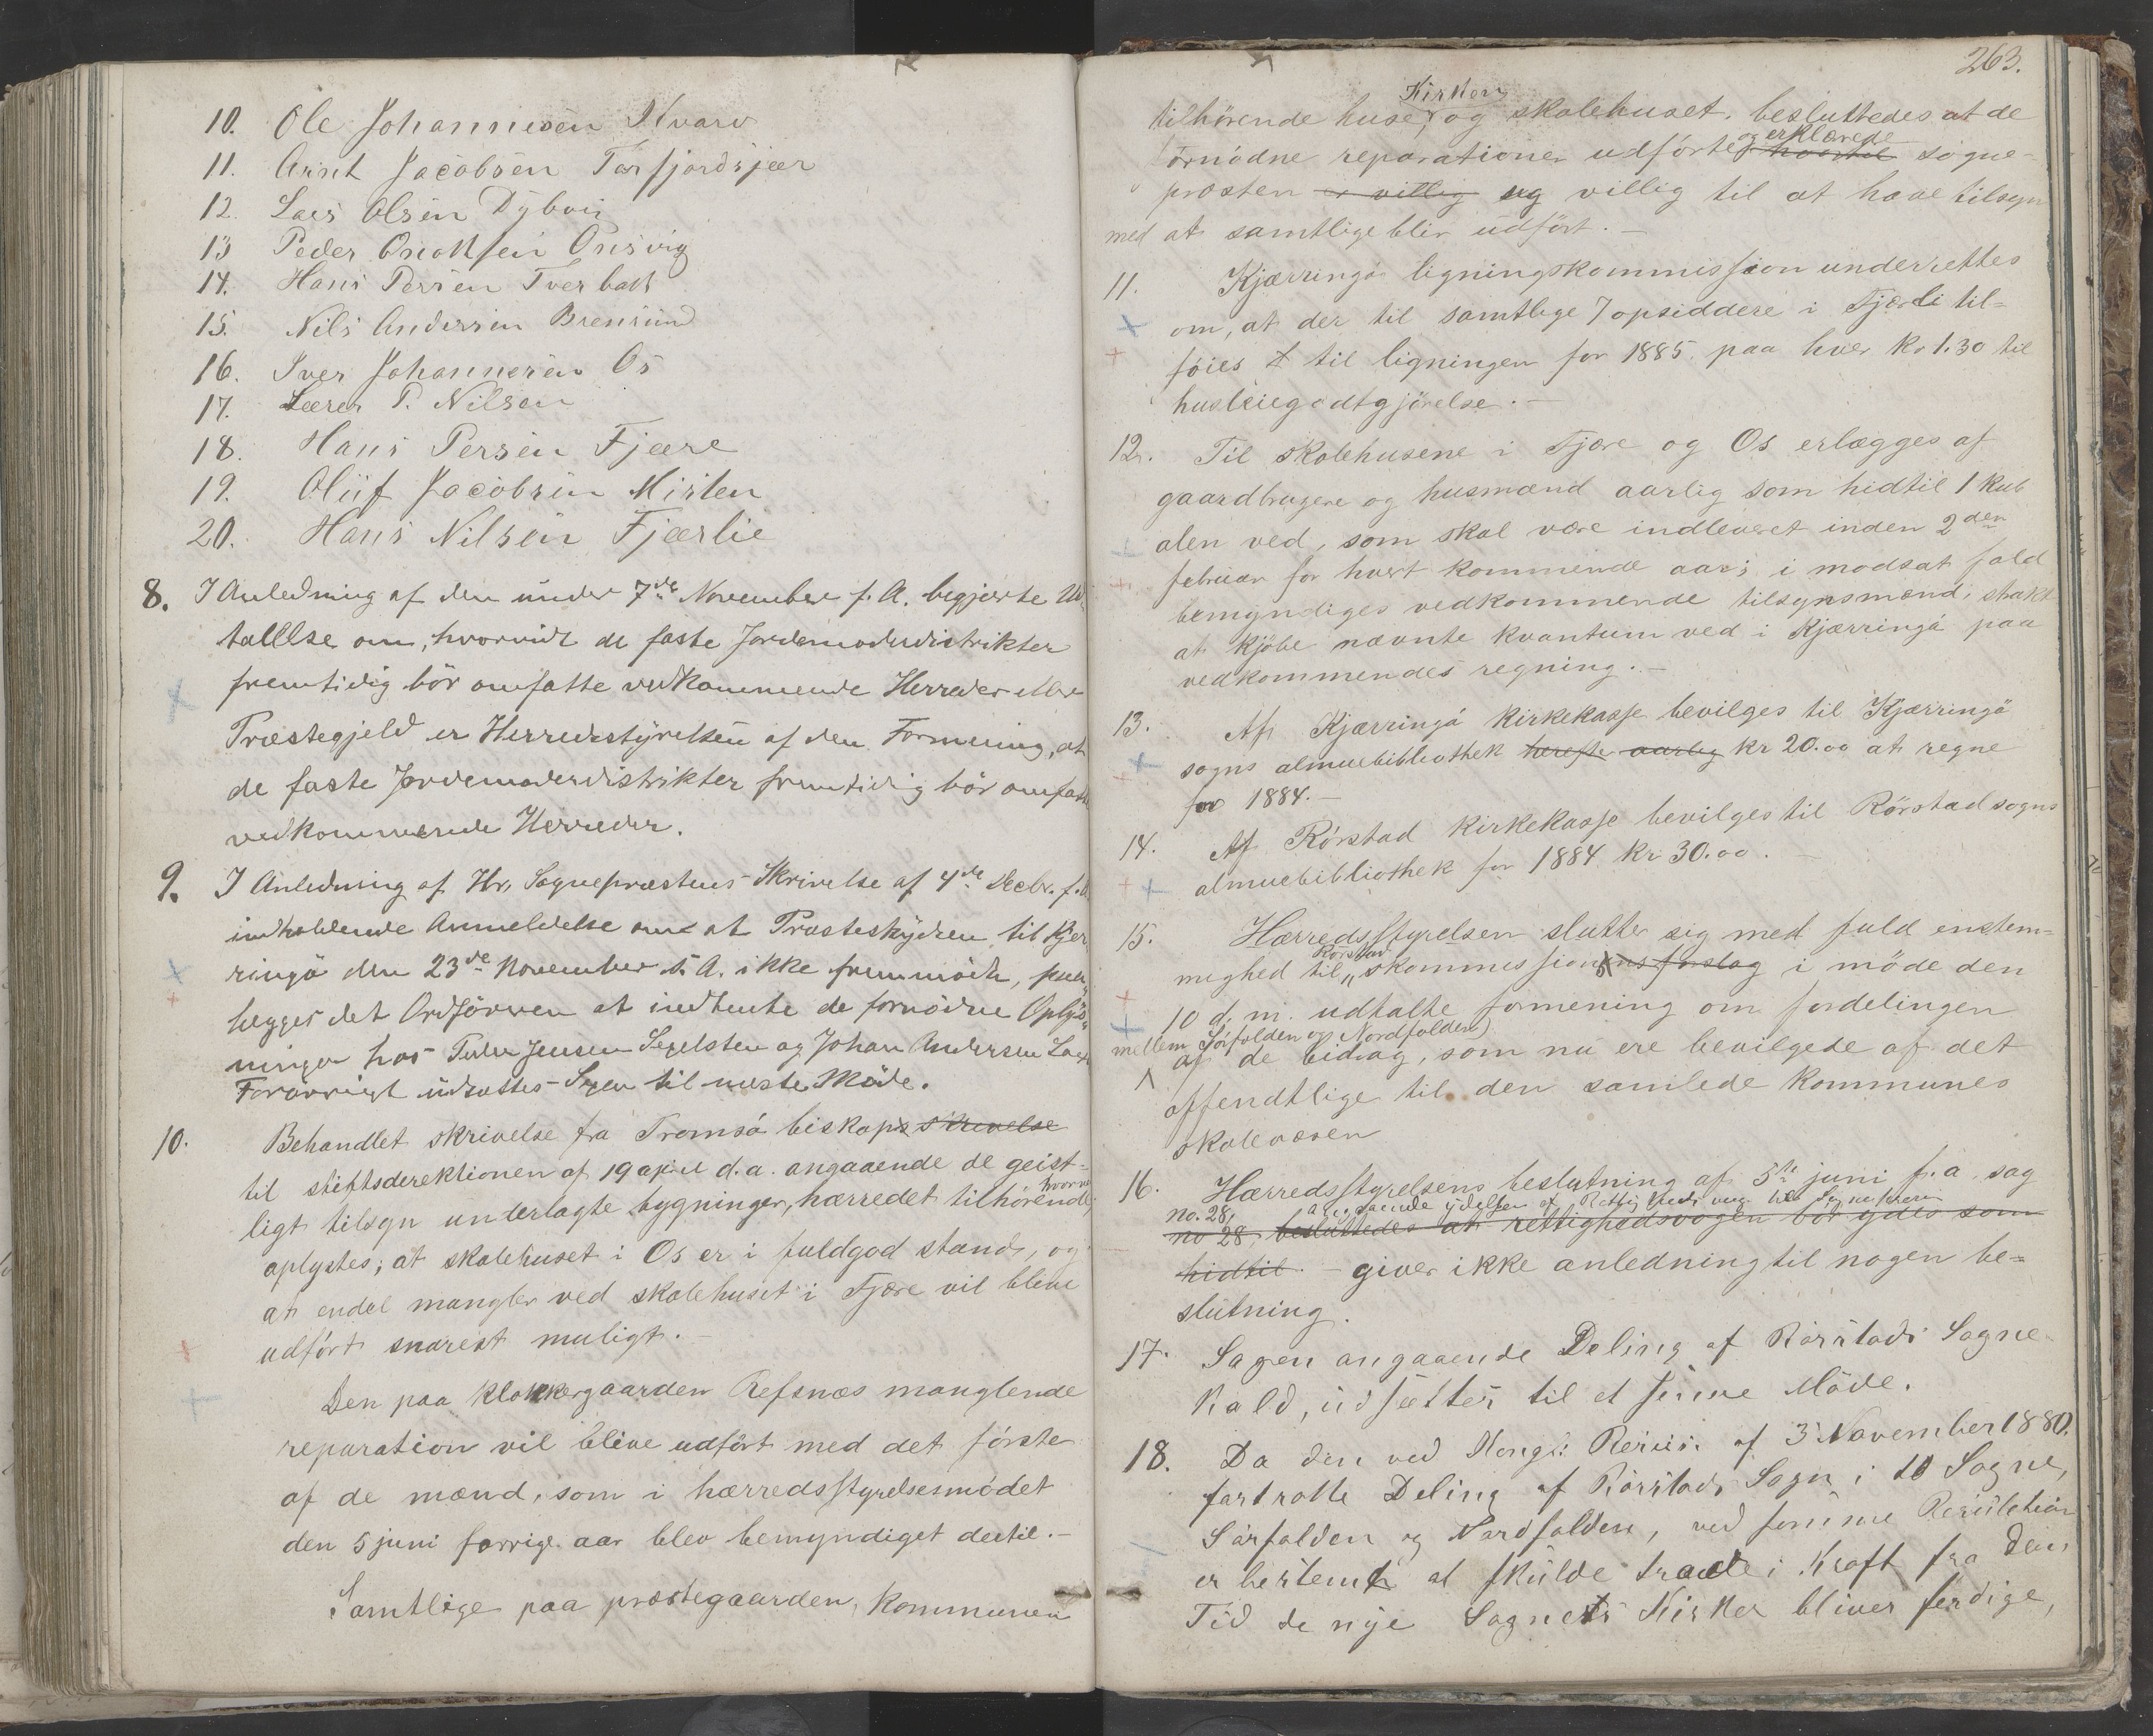 10. Ole Johannesen Kvarv
11. Arnt Jacobsen Tørfjordsjær
12. Lars Olsen Dybvig
13 Peder Enoksen Øresvig
14. Hans Persen Tverbak
15. Nils Andersen Brensund
16. Iver Johannesen Os
17. Lærer P. Nilsen
18. Hans Persen Fjære
19. Oluf Jacobsen Misten
20. Hans Nilsen Fjærlie
8. I Anledning af den under 7de November f. A. begjærte Ud-
tallelse om, hvorvidt de faste Jordemoderdistrikter
fremtidig bör omfatte vedkommende Herreder eller
Præstegjeld er Herredsstyrelsen af den Formening, at
de faste Jordemoderdistrikter fremtidig bör omfatte
vedkommende Herreder.
9. I Anledning af Hr. Sognepræstens Skrivelse af 4de Decbr. f. A.
indholdende Anmeldelse om at Præsteskydsen til Kjer-
ringö den 23de November s. A. ikke fremmödte, paa-
lægges det Ordföreren at indhente de fornödne Oplys-
ninger hos Peder Jensen Segelsten og Johan Andersen
Forövrigt udsættes Sagen til næste Möde.
10. Behandlet skrivelse fra Tromsö biskops skrivelse
til stiftsdirektionen af 19 april d.a. angaaende de geist-
ligt tilsyn underlagte bygninger, hærredet tilhörende, hvorved
oplystes; at skolehuset i Os er i fuldgod stand, og
at endel mangler ved skolehuset i Fjære vil blive
udfört snarest muligt. –
Den paa klokkergaarden Refsnæs manglende
reparation vil blive udfört med det förste
af de mænd, som i hærredsstyrelsesmödet
den 5 juni forrige aar blev bemyndiget dertil. –
Samtlige paa præstegaarden, kommunen
263.
Kirken
tilhörende huse, og skolehuset, besluttedes at de
og erklærede
fornödne reparationer udförtes hvortil sogne-
præsten er villig sig villig til at have tilsyn
med at samtlige blir udfört. –
11. Kjærringö ligningskommission underrettes
om, at der til samtlige 7 opsiddere i Fjærli til-
föies t til ligningen for 1885 paa hver Kr 1.30 til
husleiegodtgjörelse. –
12. Til skolehusene i Fjære og Os erlægges af
gaardbrugere og husmænd aarlig som hidtil 1 kub
alen ved, som skal være indleveret inden 2den
februar for hvert kommende aar; i modsat fald
bemyndiges vedkommende tilsynsmænd, strakt
at kjöbe nævnte kvantum ved i Kjærringö paa
vedkommendes regning. –
13. Af Kjærringö kirkekasse bevilges til Kjærringö
sogns almuebibliothek herefter aarlig kr 20.00 at regne
for 1884. –
14. Af Rörstad kirkekasse bevilges til Rörstad sogns
almuebibliothek for 1884 kr 30.00. –
15. Hærredsstyrelsen slutter sig med fuld enstem-
Rörstad
mighed til skommissionens forslag i möde den
10 d. m. udtalte formening om fordelingen
mellem Sörfolden og Nordfolden)
af de bidrag, som nu ere bevilgede af det
offendtlige til den samlede kommunes
skolevæsen
16. Hærredsstyrelsens beslutning af 5te juni f.a. sag
no. 28, angaaende ydelsen af Rettighedsvogn til Sognepresten
no 28, besluttedes at rettighedsvogen bör ydes som
hidtil. – giver ikke anledning til nogen be-
slutning.
17. Sagen angaaende Deling af Rörstads Sogne-
kald, udsættes til et senere Möde.
18. Da den ved Kongl: Resus. af 3 November 1880.
fastsatte Deling af Rörstads Sogn i to Sogne,
Sörfolden og Nordfolden, ved samme Resulution
er bestemt at skulde træde i Kraft fra den
Tid de nye Sognets Kirker bliver færdige,